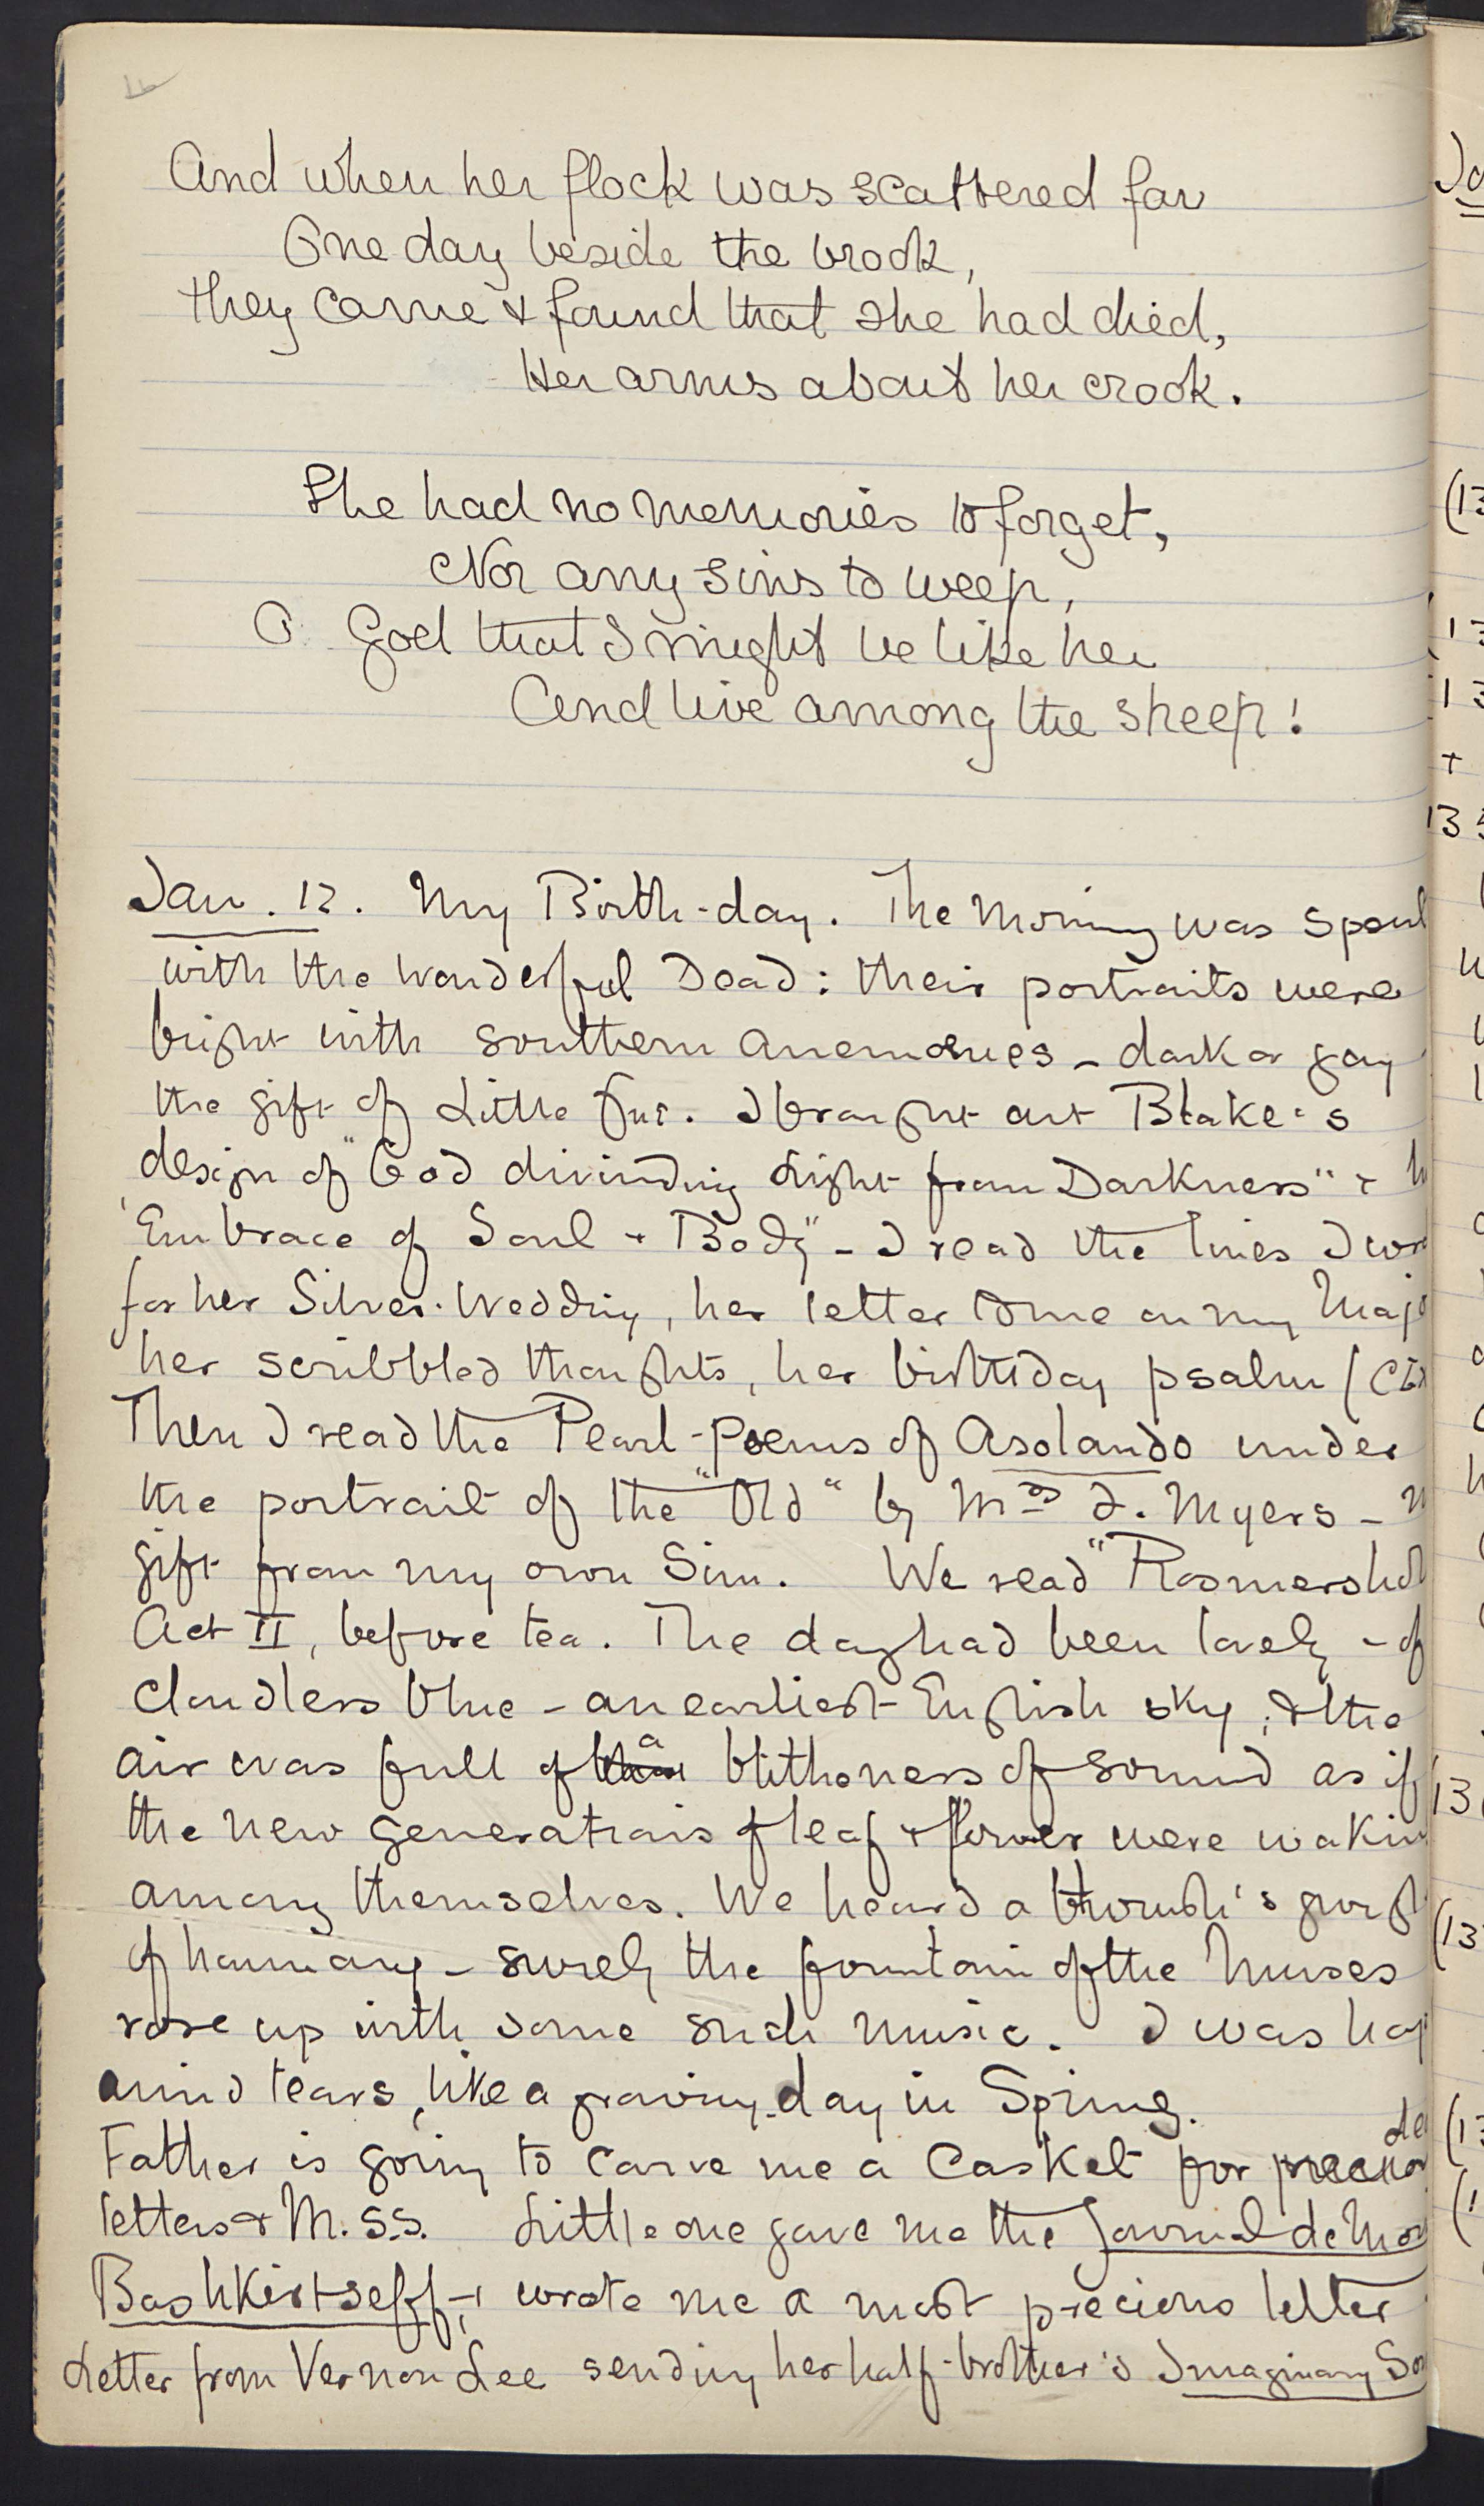 16
And when her flock was scattered far
One day beside the brook,
they came & found that she had died,
Her arms about her crook.
She had no memories to forget,
Nor any sins to weep,
O God that I might be like her
And live among the sheep!
Jan. 12. My Birth-day. The morning was spent
with the wonderful Dead: their portraits were
bright with southern anemones – dark or gay
the gift of Little Fur. I brought out Blake's
design of "God dividing Light from Darkness" &
'Embrace of Soul & Body" – I read the lines I
for her Silver. Wedding, her letter to me on my
her scribbled thoughts, her birthday psalm
Then I read the Pearl-Poems of Asolando under
the portrait of the "Old" by Mrs F. Myers –
gift from my own Sim. We read "Rosmersho
Act II, before tea. The day had been lovely – of
cloudless blue – an earliest English sky; & the
air was full of a blitheness of sound as if
the new generations of leaf & flower were wakin
among themselves. We heard a thrush's
of harmony – surely the fountain of the Muses
rose up with some such music. I was hap
amid tears, like a growing-day in Spring.
Father is going to carve me a Casket for
de
letters & M.SS. Little one gave me the Journal de
Bashkirtseff & wrote me a most precious letter
Letter from Vernon Lee sending her half-brother's Imaginary So